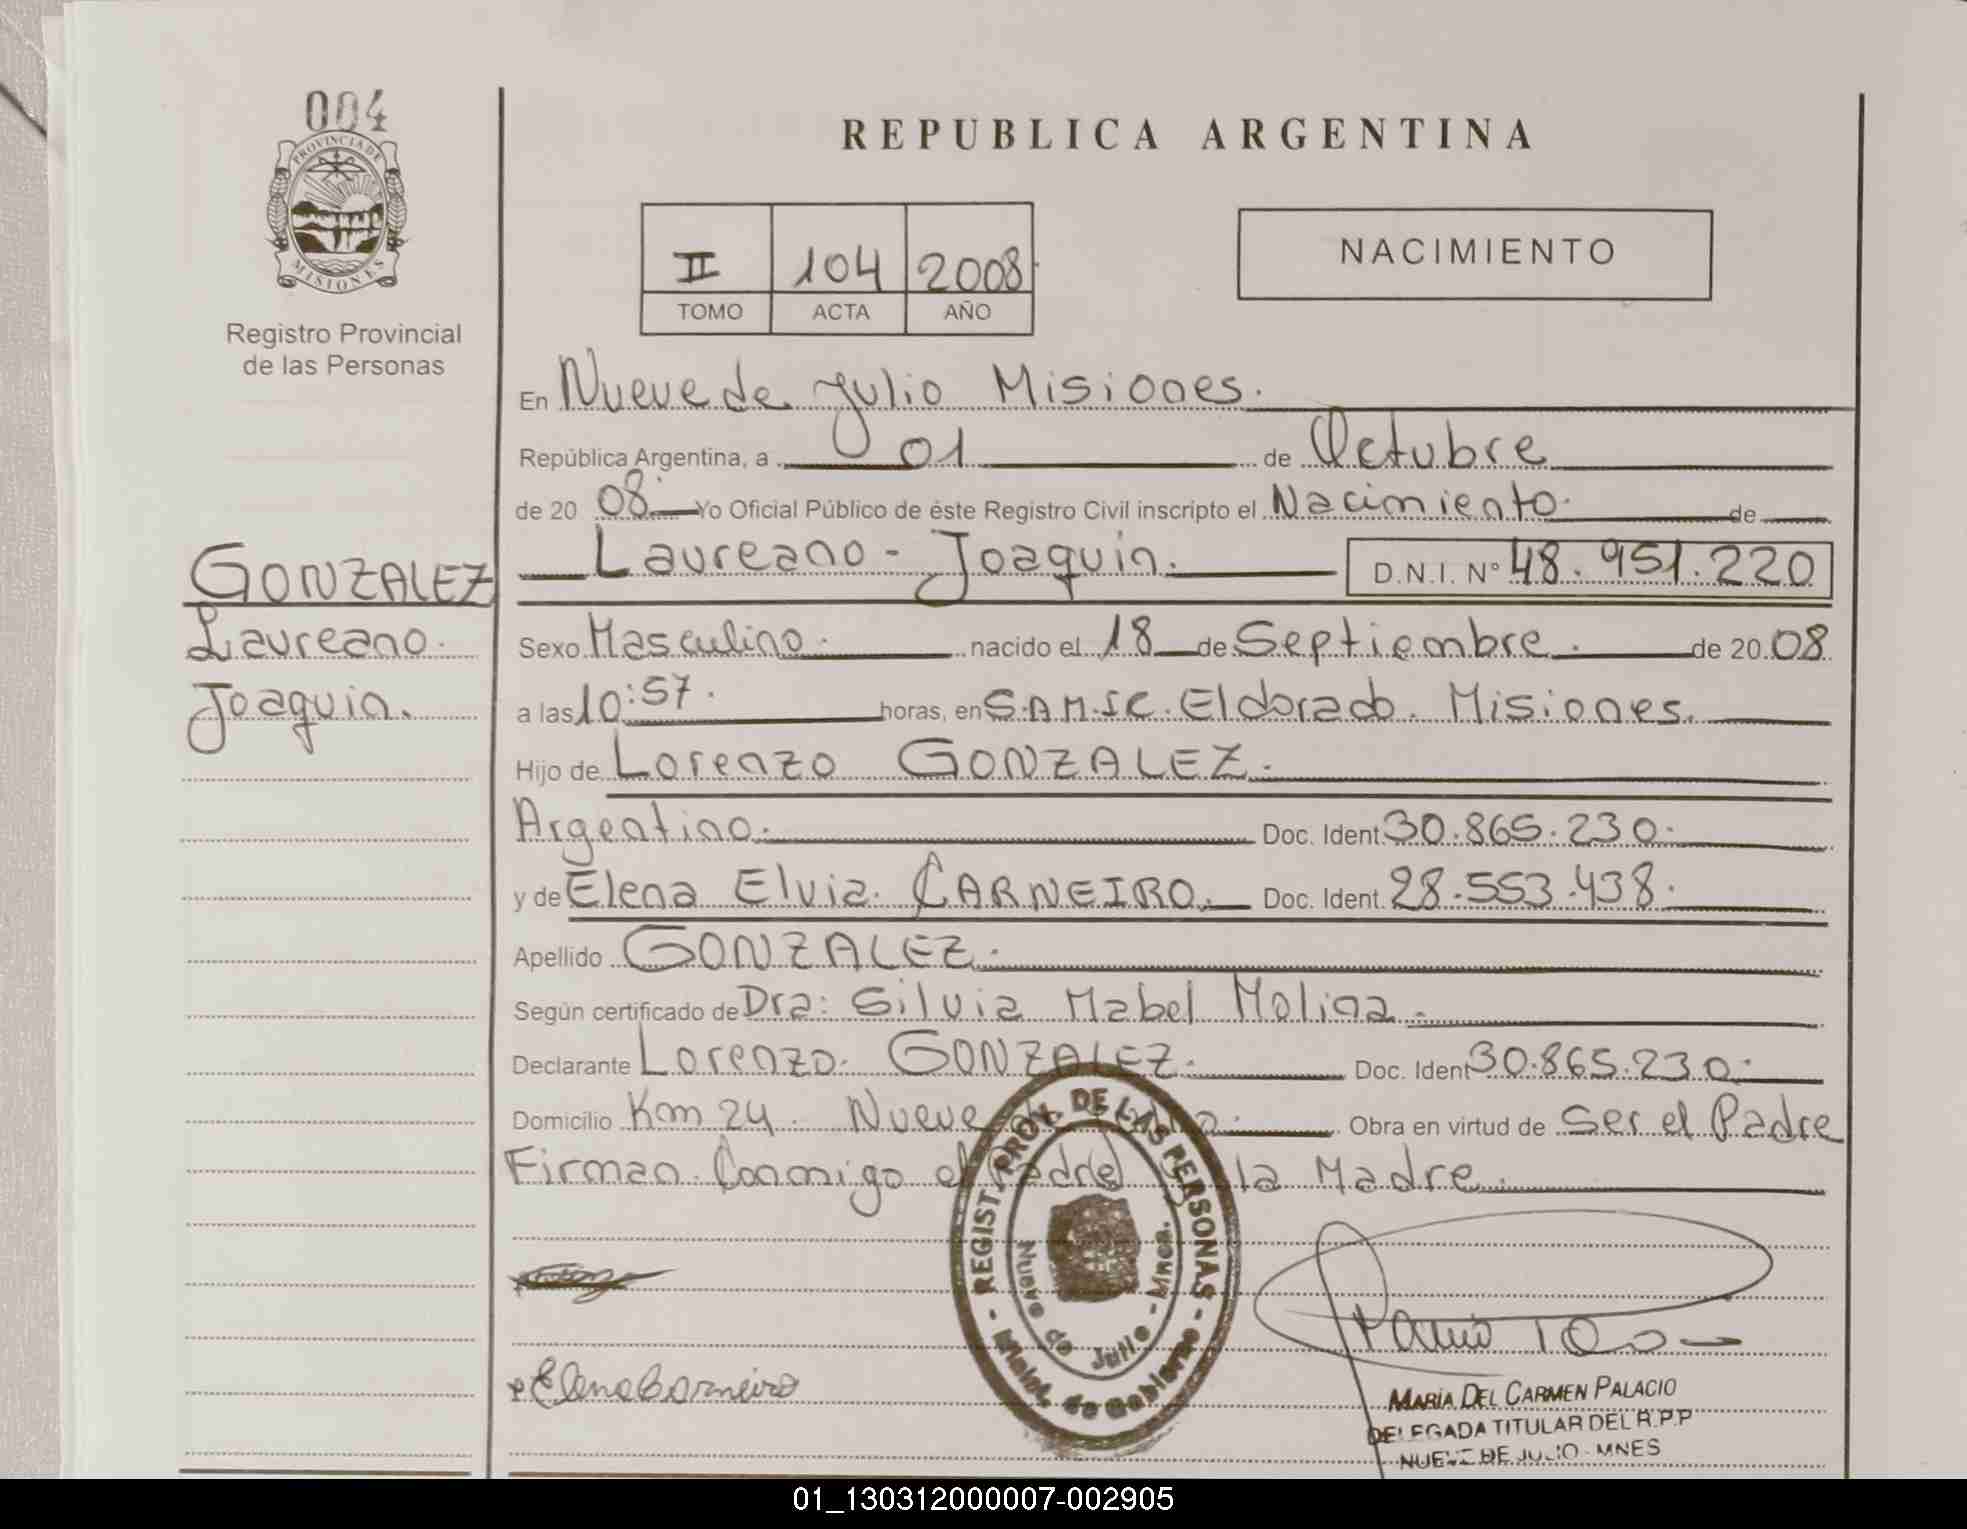 004
PROVINCIA DE
MISIONES
Registro Provincial
de las Personas
REPUBLICA ARGENTINA
II 104 2008
TOMO ACTA AÑO
NACIMIENTO
En Nueve de Julio Misiones.
República Argentina, a 01 de Octubre
de 20 08 Yo Oficial Público de éste Registro Civil inscripto el Nacimiento de
Laureano - Joaquin. D.N.I. Nº 48.951.220
GONZALEZ
Laureano.
Joaquin.
Sexo Masculino. nacido el 18 de Septiembre. de 20 08
a las 10:57. horas, en S.A.M.I.C. Eldorado. Misiones.
Hijo de Lorenzo GONZALEZ.
Argentino. Doc. Ident. 30.865.230.
y de Elena Elvia. CARNEIRO. Doc. Ident. 28.553.438.
Apellido GONZALEZ.
Según certificado de Dra: Silvia Mabel Molina.
Declarante Lorenzo. GONZALEZ. Doc. Ident 30.865.230.
Domicilio Km 24. Nueve de Julio. Obra en virtud de Ser el Padre
Firman Conmigo el Padre y la Madre.
- REGIST. PROV. DE LAS PERSONAS -
Minist. de Gobierno
Nueve de Julio - Mnes.
Elena Carneiro
MARÍA DEL CARMEN PALACIO
DELEGADA TITULAR DEL R.P.P
NUEVE DE JULIO - MNES
01_130312000007-002905